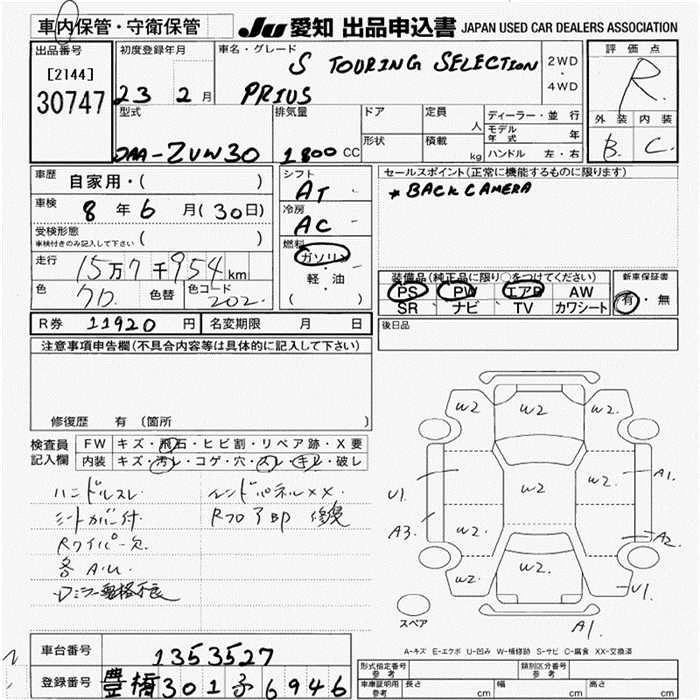 車内保管・守衛保管
JU 愛知 出品申込書 JAPAN USED CAR DEALERS ASSOCIATION
出品番号
[2144]
30747
初度登録年月
23 2 月
車名・グレード
S TOURING SELECTION
PRIUS
2WD
・
4WD
評価点
R
外装 内装
B. C.
型式
DAA-ZVW30
排気量
1800 CC
ドア
形状
定員 人
積載 kg
ディーラー・並行
モデル年式 年
ハンドル 左・右
車歴 自家用・( )
車検 8 年 6 月(30日)
受検形態
車検付きのみ記入して下さい ( )
走行 15万7千954 km
色 70. 色替 色コード 202.
シフト AT
冷房 AC
燃料 ガソリン
・
軽・油
( )
セールスポイント(正常に機能するものに限ります)
* BACK CAMERA
装備品(純正品に限り○をつけてください)
PS PW エアB AW
SR ナビ TV カワシート
新車保証書
有・無
R券 11920 円 名変期限 月 日
後日品
注意事項申告欄(不具合内容等は具体的に記入して下さい)
修復歴 有 (箇所
検査員記入欄
FW キズ・飛石・ヒビ割・リペア跡・X要
内装 キズ・汚レ・コゲ・穴・スレ・キレ・破レ
ハンドルスレ
シートカバー付
Rワイパー欠
各A.U.
インドパネルXX
Rフロア即 修復
W2 W2 W2
U1. W2 A1.
A3. W2 W2 A2.
W2 W2. W2 U1.
A1.
スペア
A-キズ E-エクボ U-凹み W-補修跡 S-サビ C-腐食 XX-交換済
車台番号 1353527
登録番号 豊橋 301 る 6946
形式指定番号 参考
類別区分番号 参考
車庫証明用 参考 長さ cm 幅 cm 高さ cm